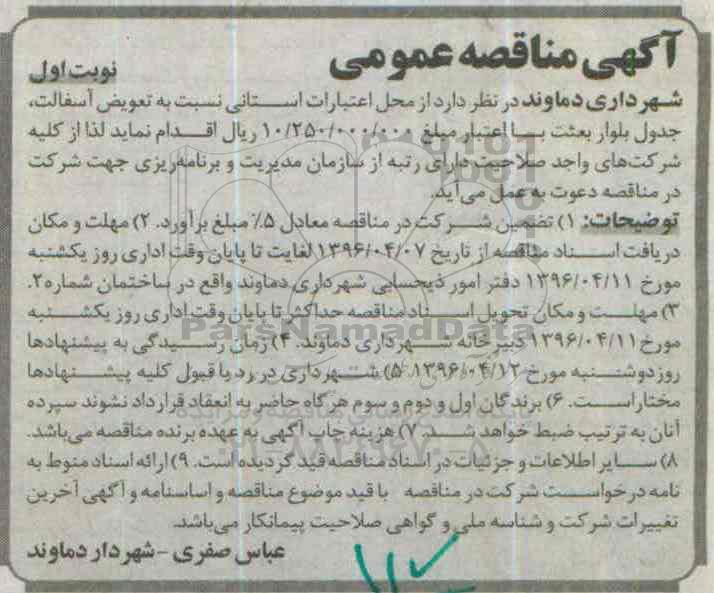 آگهی مناقصه عمومی
نوبت اول
شهرداری دماوند در نظر دارد از محل اعتبارات استانی نسبت به تعویض آسفالت،
جدول بلوار بعثت با اعتبار مبلغ ۱۰/۲۵۰/۰۰۰/۰۰۰ ریال اقدام نماید لذا از کلیه
شرکت‌های واجد صلاحیت دارای رتبه از سازمان مدیریت و برنامه‌ریزی جهت شرکت
در مناقصه دعوت به عمل می‌آید.
توضیحات: ۱) تضمین شرکت در مناقصه معادل ۵٪ مبلغ برآورد. ۲) مهلت و مکان
دریافت اسناد مناقصه از تاریخ ۱۳۹۶/۰۴/۰۷ لغایت تا پایان وقت اداری روز یکشنبه
مورخ ۱۳۹۶/۰۴/۱۱ دفتر امور ذیحسابی شهرداری دماوند واقع در ساختمان شماره۲.
۳) مهلت و مکان تحویل اسناد مناقصه حداکثر تا پایان وقت اداری روز یکشنبه
مورخ ۱۳۹۶/۰۴/۱۱ دبیرخانه شهرداری دماوند. ۴) زمان رسیدگی به پیشنهادها
روز دوشنبه مورخ ۱۳۹۶/۰۴/۱۲ ۵) شهرداری در رد یا قبول کلیه پیشنهادها
مختار است. ۶) برندگان اول و دوم و سوم هرگاه حاضر به انعقاد قرارداد نشوند سپرده
آنان به ترتیب ضبط خواهد شد. ۷) هزینه چاپ آگهی به عهده برنده مناقصه می‌باشد.
۸) سایر اطلاعات و جزئیات در اسناد مناقصه قید گردیده است. ۹) ارائه اسناد منوط به
نامه درخواست شرکت در مناقصه با قید موضوع مناقصه و اساسنامه و آگهی آخرین
تغییرات شرکت و شناسه ملی و گواهی صلاحیت پیمانکار می‌باشد.
عباس صفری - شهردار دماوند
ParsNamadData